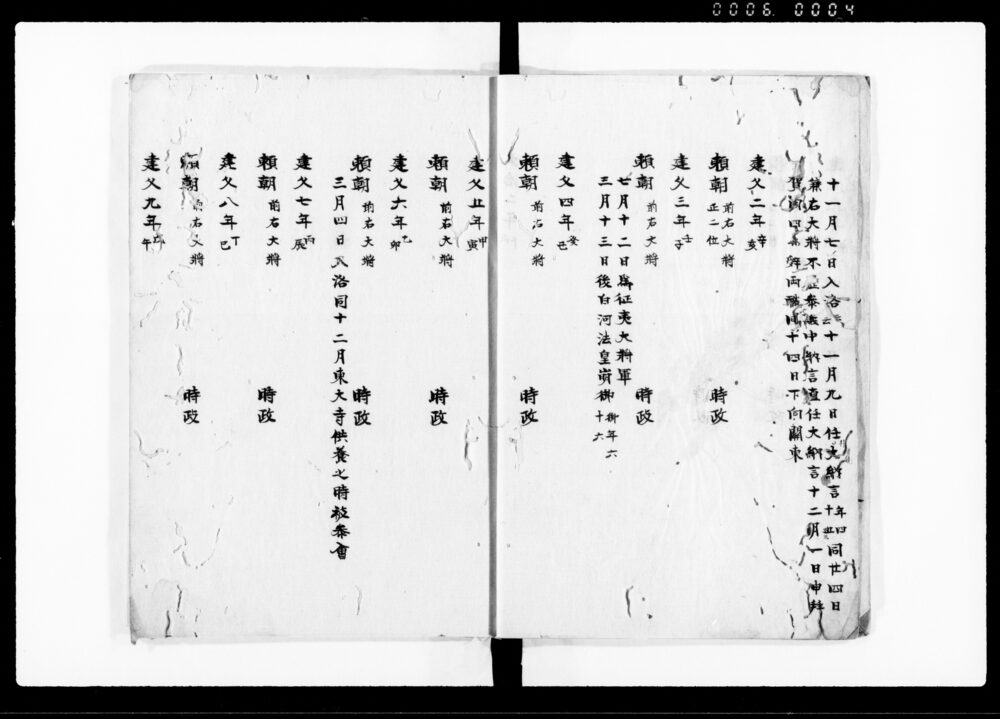 0006 0004
十一月七日入洛云十一月九日任大納言年四十五同廿四日
兼右大将不 中納言直任大納言十二月一日申
賀 両 同十四日下向關東
建久二年辛亥
頼朝 前右大将正二位 時政
建久三年壬子
頼朝 前右大将 時政
七月十二日為征夷大将軍
三月十三日後白河法皇崩御御年六十六
建久四年癸
頼朝 前右大将 時政
建久五年甲寅
頼朝 前右大将 時政
建久六年乙卯
頼朝 前右大将 時政
三月四日入洛同十二月東大寺供養之時 參會
建久七年丙辰
頼朝 前右大将 時政
建久八年丁巳
頼朝 前右大将 時政
建久九年戊午